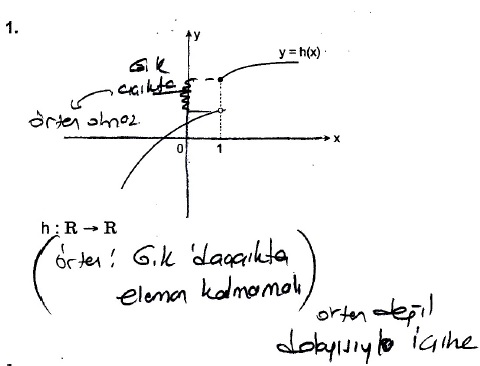 1.
y
y = h(x)
G.K
açıkta
örten olmaz
x
0 1
h : R → R
örten! G.K 'da açıkta
eleman kalmamalı
örten değil
dolayısıyla içine